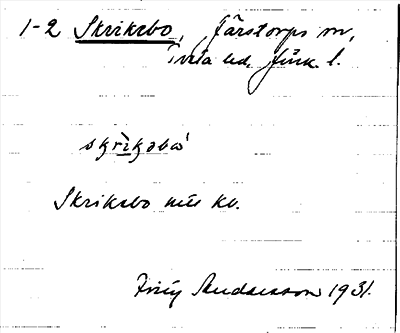 1-2 Skrikebo, Järstorps sn,
Tveta hd, Jönk. l.
skrìkəbω'
Skrikebo nu kv.
Andersson 1931.